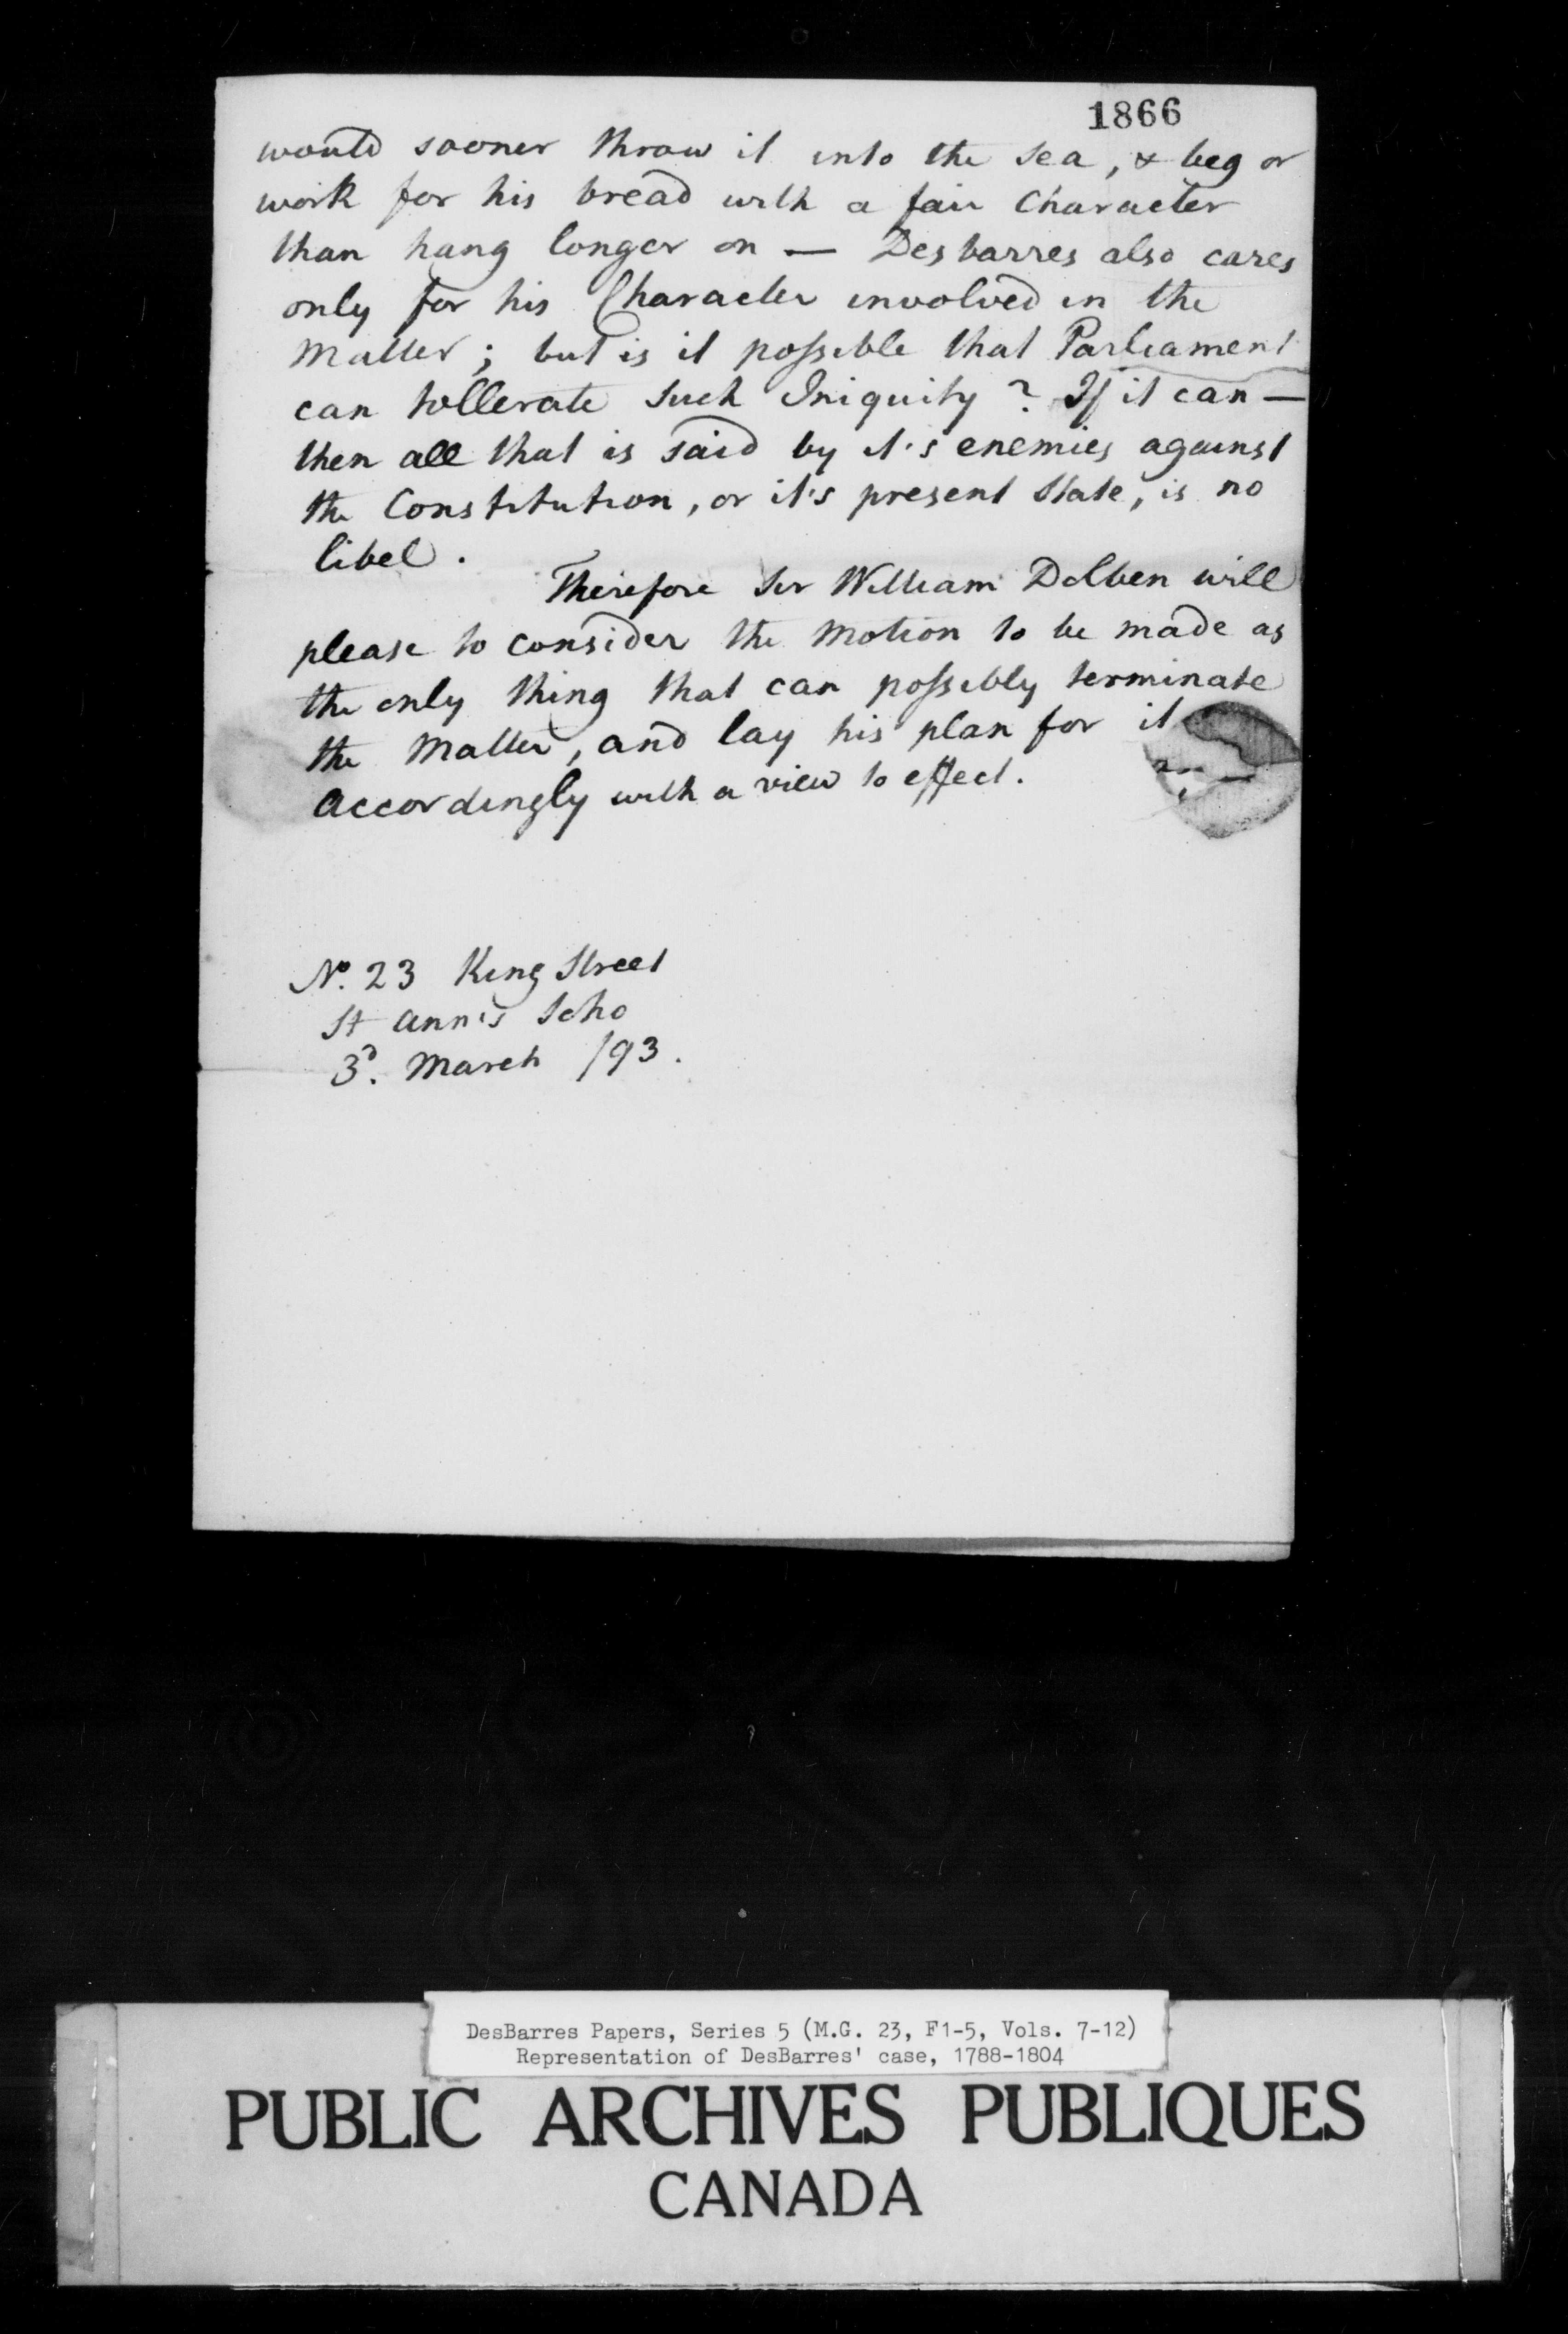 1866
would sooner throw it into the sea, & beg or
work for his bread with a fair Character
than hang longer on — Desbarres also cares
only for his Character involved in the
Matter; but is it possible that Parliament
can tollerate such Iniquity? If it can —
then all that is said by it's enemies against
the Constitution, or it's present State, is no
libel.
Therefore Sir William Dolben will
please to consider the Motion to be made as
the only thing that can possibly terminate
the Matter, and lay his plan for it
accordingly with a view to effect.
No. 23 King Street
St Ann's Soho
3d. March /93.
DesBarres Papers, Series 5 (M.G. 23, F1-5, Vols. 7-12)
Representation of DesBarres' case, 1788-1804
PUBLIC ARCHIVES PUBLIQUES
CANADA